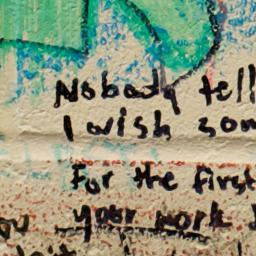 Nobody tell
I wish som
For the first
your work